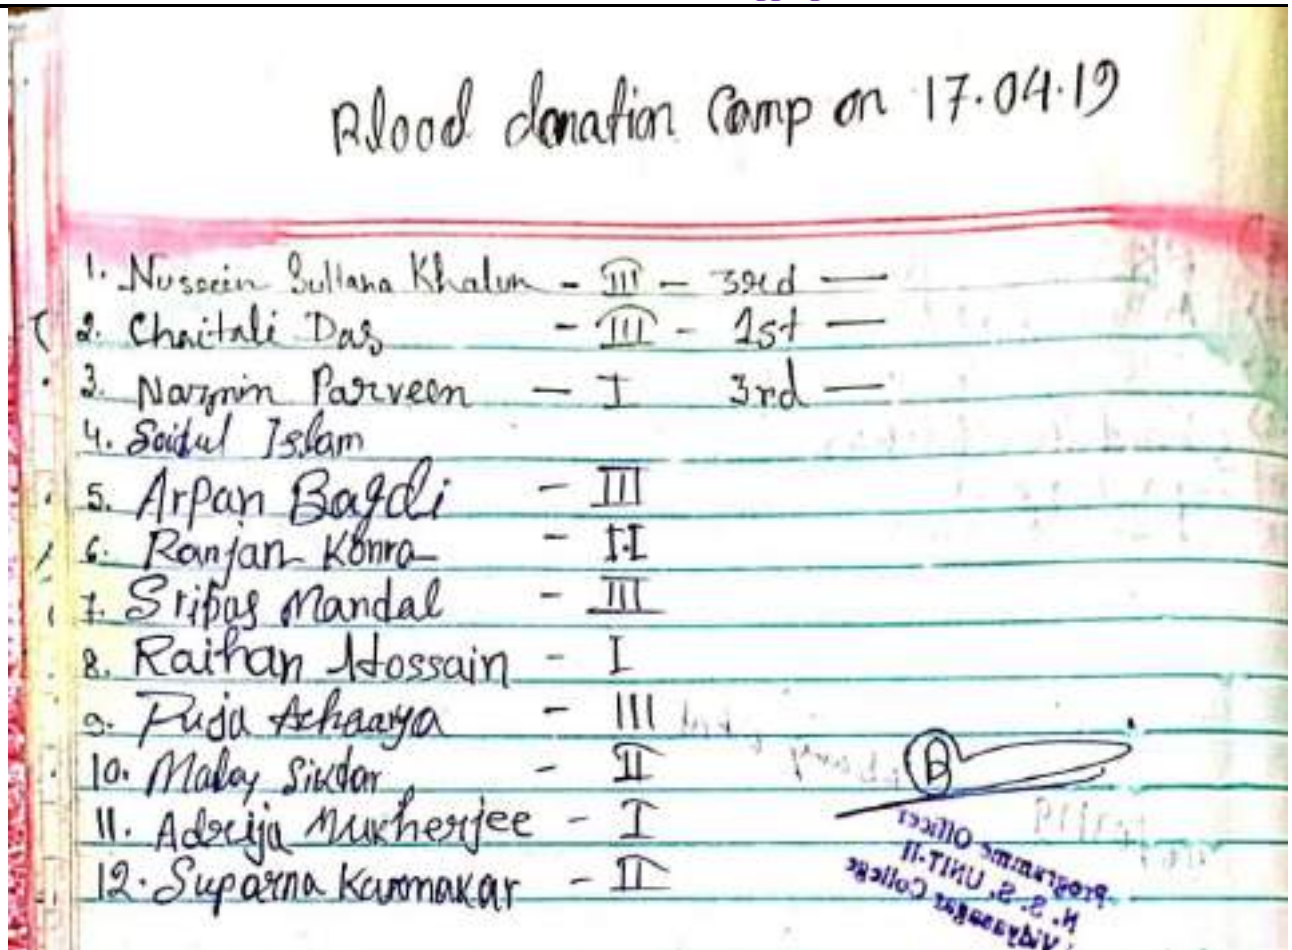 Blood donation Camp on 17.04.19
1. Nusrein Sultana Khatun - III - 3rd —
2. Chaitali Das - III - 1st —
3. Nazmin Parveen — I 3rd —
4. Saidul Islam
5. Arpan Bagdi - III
6. Ranjan Konra - II
7. Sripas Mandal - III
8. Raihan Hossain - I
9. Puja Acharya - III
10. Maloy Sikdar - II
11. Adrija Mukherjee - I
12. Suparna Karmakar - II
Programme Officer
N. S. S. UNIT-II
Vidyasagar College